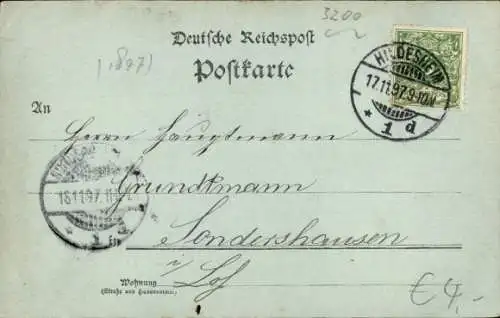 3200
Deutsche Reichspost
(1897)
Postkarte
HILDESHEIM
17.11.97.9-10N.
* 1 d
An
Herrn Hauptmann
Grundtmann
18.11.97.
* 1
Sondershausen
Wohnung
(Straße und Hausnummer)
€ 4,-